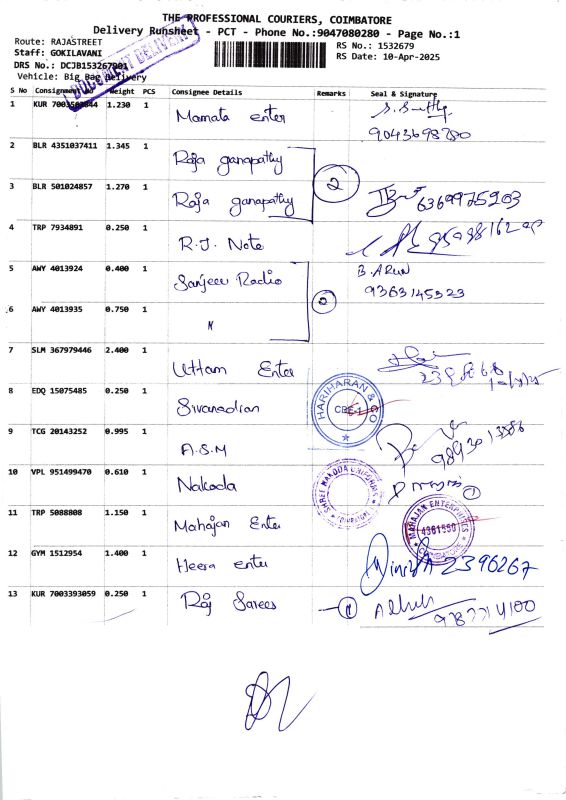 THE PROFESSIONAL COURIERS, COIMBATORE
Delivery Runsheet - PCT - Phone No.:9047080280 - Page No.:1
Route: RAJASTREET
RS No.: 1532679
Staff: GOKILAVANI
RS Date: 10-Apr-2025
DRS No.: DCJB153267
Vehicle: Big Bag Delivery
DOCUMENT DELIVERY
S No Consignment No Weight PCS Consignee Details Remarks Seal & Signature
1 KUR 1.230 1 Mamata enter
9043698780
2 BLR 4351037411 1.345 1 Raja ganapathy
2
3 BLR 501024857 1.270 1 Raja ganapathy 6369975203
4 TRP 7934891 0.250 1 R.J. Note
5 AWY 4013924 0.400 1 Sanjeev Radio B. ARUN
9363145323
2
6 AWY 4013935 0.750 1 "
7 SLM 367979446 2.400 1 Uttam Enter
8 EDQ 15075485 0.250 1 Sivanadian HARIHARAN & CO CBE-1
9 TCG 20143252 0.995 1 A.S.M
10 VPL 951499470 0.610 1 Nakoda SHREE NAKODA UNIFORMS COIMBATORE 1
11 TRP 5088808 1.150 1 Mahajan Enter MAHAJAN ENTERPRISES 4361550 COIMBATORE
12 GYM 1512954 1.400 1 Heera enter 2396267
13 KUR 7003393059 0.250 1 Raj Sarees
9787714100